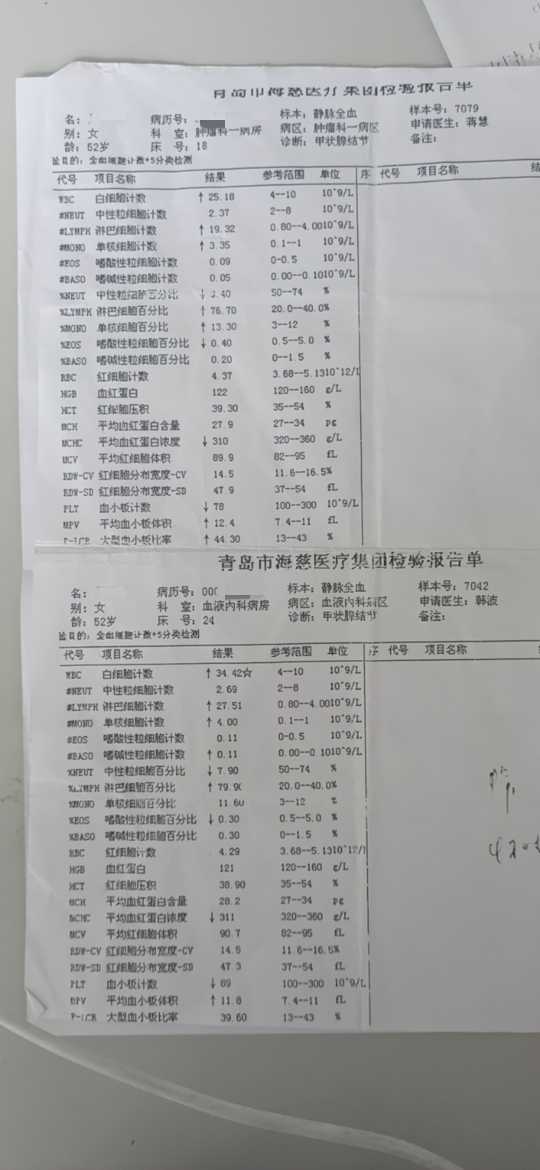 青岛市海慈医疗集团检验报告单
名： 病历号： 标本：静脉全血 样本号：7079
别：女 科 室：肿瘤科一病房 病区：肿瘤科一病区 申请医生：蒋慧
龄：52岁 床 号：18 诊断：甲状腺结节 备注：
验目的：全血细胞计数+5分类检测
代号 项目名称 结果 参考范围 单位 序 代号 项目名称 结
WBC 白细胞计数 ↑ 25.18 4--10 10^9/L
#NEUT 中性粒细胞计数 2.37 2--8 10^9/L
#LYMPH 淋巴细胞计数 ↑ 19.32 0.80--4.00 10^9/L
#MONO 单核细胞计数 ↑ 3.35 0.1--1 10^9/L
#EOS 嗜酸性粒细胞计数 0.09 0-0.5 10^9/L
#BASO 嗜碱性粒细胞计数 0.05 0.00--0.10 10^9/L
%NEUT 中性粒细胞百分比 ↓ .40 50--74 %
%LYMPH 淋巴细胞百分比 ↑ 76.70 20.0--40.0 %
%MONO 单核细胞百分比 ↑ 13.30 3--12 %
%EOS 嗜酸性粒细胞百分比 ↓ 0.40 0.5--5.0 %
%BASO 嗜碱性粒细胞百分比 0.20 0--1.5 %
RBC 红细胞计数 4.37 3.68--5.13 10^12/L
HGB 血红蛋白 122 120--160 g/L
HCT 红细胞压积 39.30 35--54 %
MCH 平均血红蛋白含量 27.9 27--34 pg
MCHC 平均血红蛋白浓度 ↓ 310 320--360 g/L
MCV 平均红细胞体积 89.9 82--95 fL
RDW-CV 红细胞分布宽度-CV 14.5 11.6--16.5 %
RDW-SD 红细胞分布宽度-SD 47.9 37--54 fL
PLT 血小板计数 ↓ 78 100--300 10^9/L
MPV 平均血小板体积 ↑ 12.4 7.4--11 fL
P-LCR 大型血小板比率 ↑ 44.30 13--43 %
青岛市海慈医疗集团检验报告单
名： 病历号：000 标本：静脉全血 样本号：7042
别：女 科 室：血液内科病房 病区：血液内科病区 申请医生：韩波
龄：52岁 床 号：24 诊断：甲状腺结节 备注：
验目的：全血细胞计数+5分类检测
代号 项目名称 结果 参考范围 单位 序 代号 项目名称
WBC 白细胞计数 ↑ 34.42☆ 4--10 10^9/L
#NEUT 中性粒细胞计数 2.69 2--8 10^9/L
#LYMPH 淋巴细胞计数 ↑ 27.51 0.80--4.00 10^9/L
#MONO 单核细胞计数 ↑ 4.00 0.1--1 10^9/L
#EOS 嗜酸性粒细胞计数 0.11 0-0.5 10^9/L
#BASO 嗜碱性粒细胞计数 ↑ 0.11 0.00--0.10 10^9/L
%NEUT 中性粒细胞百分比 ↓ 7.90 50--74 %
%LYMPH 淋巴细胞百分比 ↑ 79.90 20.0--40.0 %
%MONO 单核细胞百分比 11.60 3--12 %
%EOS 嗜酸性粒细胞百分比 ↓ 0.30 0.5--5.0 %
%BASO 嗜碱性粒细胞百分比 0.30 0--1.5 %
RBC 红细胞计数 4.29 3.68--5.13 10^12/
HGB 血红蛋白 121 120--160 g/L
HCT 红细胞压积 38.90 35--54 %
MCH 平均血红蛋白含量 28.2 27--34 pg
MCHC 平均血红蛋白浓度 ↓ 311 320--360 g/L
MCV 平均红细胞体积 90.7 82--95 fL
RDW-CV 红细胞分布宽度-CV 14.5 11.6--16.5 %
RDW-SD 红细胞分布宽度-SD 47.3 37--54 fL
PLT 血小板计数 ↓ 69 100--300 10^9/L
MPV 平均血小板体积 ↑ 11.8 7.4--11 fL
P-LCR 大型血小板比率 39.60 13--43 %